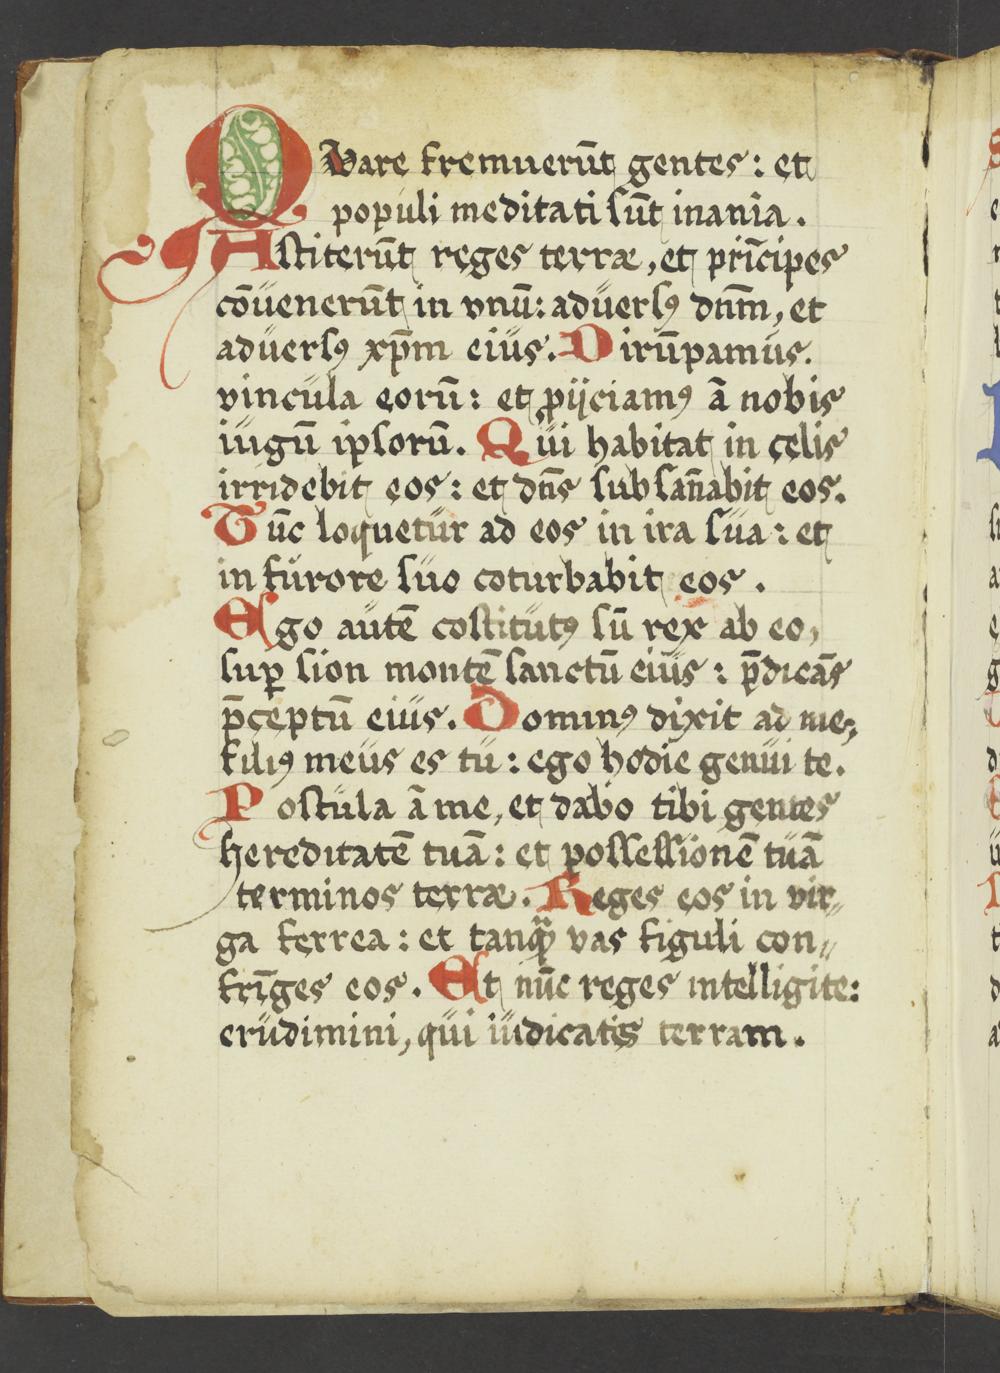 Qvare fremuerūt gentes : et
populi meditati sūt inania .
Astiterūt reges terræ , et prīcipes
cōuenerūt in vnū : aduersꝯ dn̄m , et
aduersꝯ xp̄m eius . Dirūpamus .
vincula eorū : et ꝓijciamꝯ ā nobis
iugū ipsorū . Qui habitat in cęlis
irridebit eos : et dn̄s subsan̄abit eos .
Tūc loquetur ad eos in ira sua : et
in furore suo coturbabit eos .
Ego autē costitutꝯ sū rex ab eo ,
suꝑ sion montē sanctū eius : p̄dicās
p̄ceptū eius . Dominꝯ dixit ad me ;
filiꝯ meus es tu : ego hodie genui te .
Postula ā me , et dabo tibi gentes
hereditatē tuā : et possessionē tuā
terminos terræ . Reges eos in vir〃
ga ferrea : et tanꝙ̄ vas figuli con〃
frīges eos . Et nūc reges intelligite :
erudimini , qui iudicatis terram .